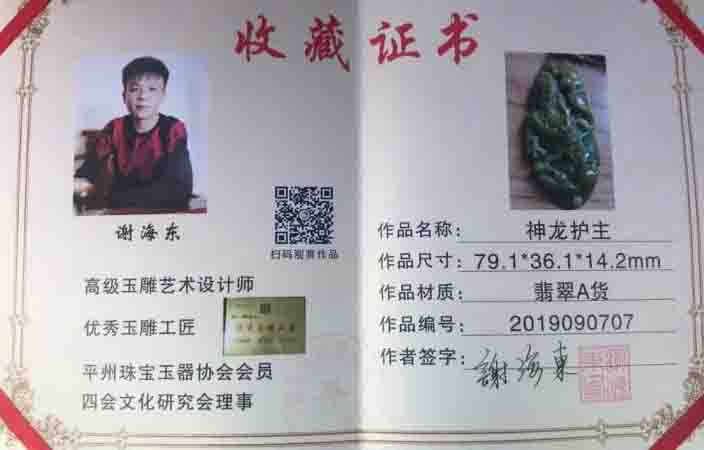 收藏证书
谢海东
扫码观赏作品
高级玉雕艺术设计师
优秀玉雕工匠
平州珠宝玉器协会会员
四会文化研究会理事
作品名称：神龙护主
作品尺寸：79.1*36.1*14.2mm
作品材质：翡翠A货
作品编号：2019090707
作者签字：謝海東